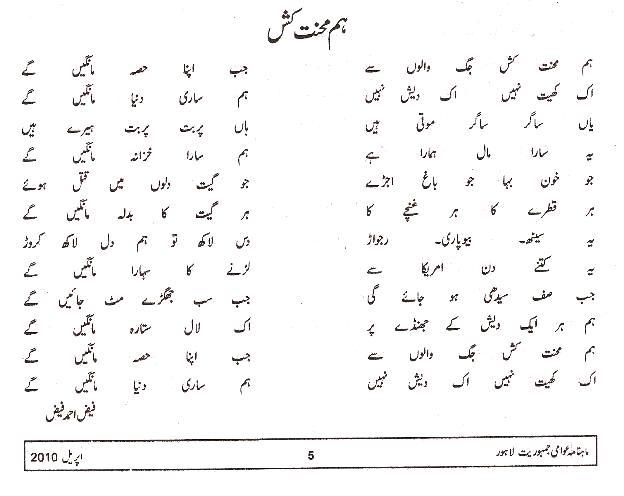 ہم محنت کش
ہم محنت کش جگ والوں سے جب اپنا حصہ مانگیں گے
اک کھیت نہیں اک دیش نہیں ہم ساری دنیا مانگیں گے
یاں ساگر ساگر موتی ہیں یاں پربت پربت ہیرے ہیں
یہ سارا مال ہمارا ہے ہم سارا خزانہ مانگیں گے
جو خون بہا جو باغ اجڑے جو گیت دلوں میں قتل ہوئے
ہر قطرے کا ہر غنچے کا ہر گیت کا بدلہ مانگیں گے
یہ سیٹھ۔ بیوپاری۔ رجواڑ دس لاکھ تو ہم دل لاکھ کروڑ
یہ کتنے دن امریکا سے لڑنے کا سہارا مانگیں گے
جب صف سیدھی ہو جائے گی جب سب جھگڑے مٹ جائیں گے
ہم ہر ایک دیش کے جھنڈے پر اک لال ستارہ مانگیں گے
ہم محنت کش جگ والوں سے جب اپنا حصہ مانگیں گے
اک کھیت نہیں اک دیش نہیں ہم ساری دنیا مانگیں گے
فیض احمد فیض
ماہنامہ عوامی جمہوریت لاہور 5 اپریل 2010